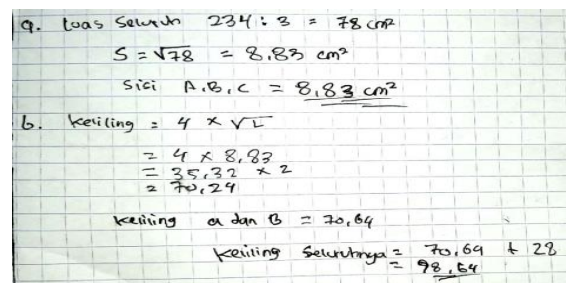 a. Luas Seluruh 234 : 3 = 78 cm²
S = √78 = 8,83 cm²
Sisi A, B, C = 8,83 cm²
b. Keliling = 4 × √L
= 4 × 8,83
= 35,32 × 2
= 70,24
Keliling a dan B = 70,64
Keliling Seluruhnya = 70,64 + 28
= 98,64